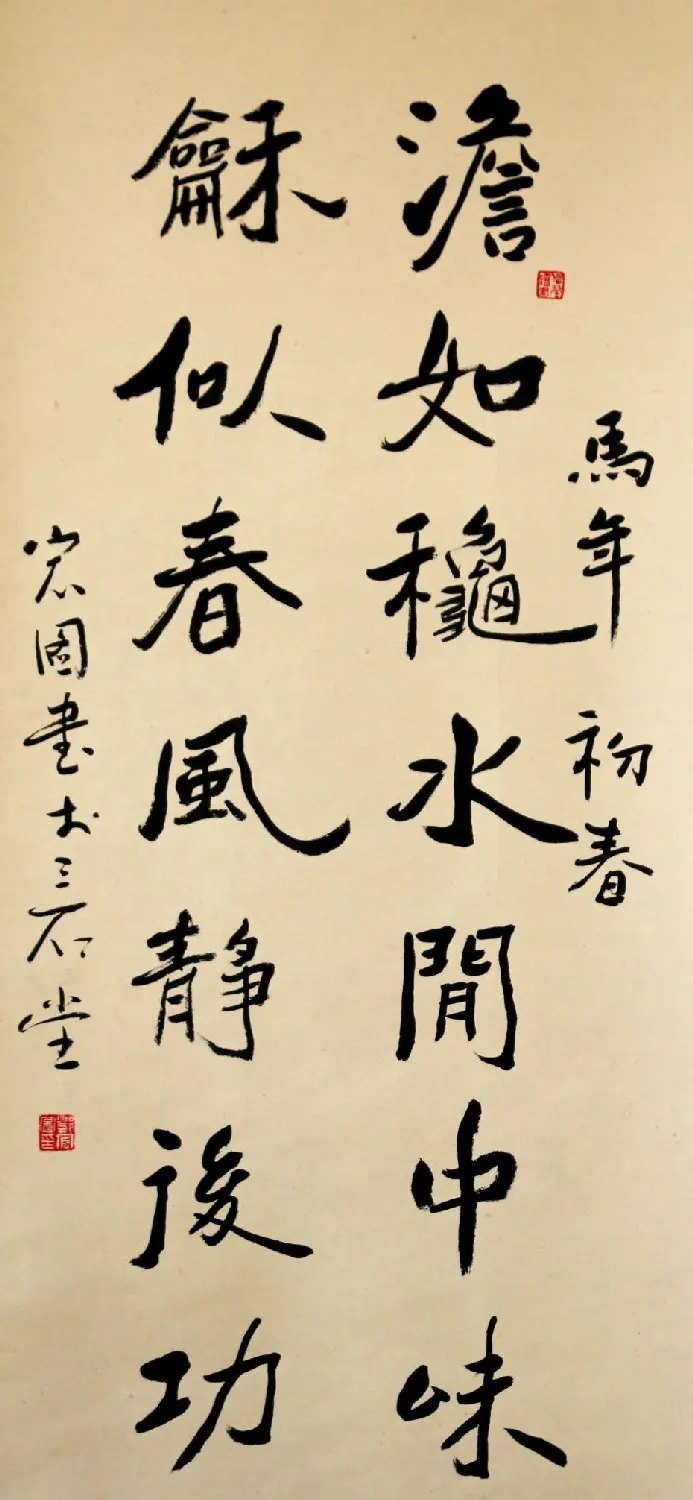 馬年初春
澹如穐水閒中味
龢似春風靜後功
宏图書於三石堂